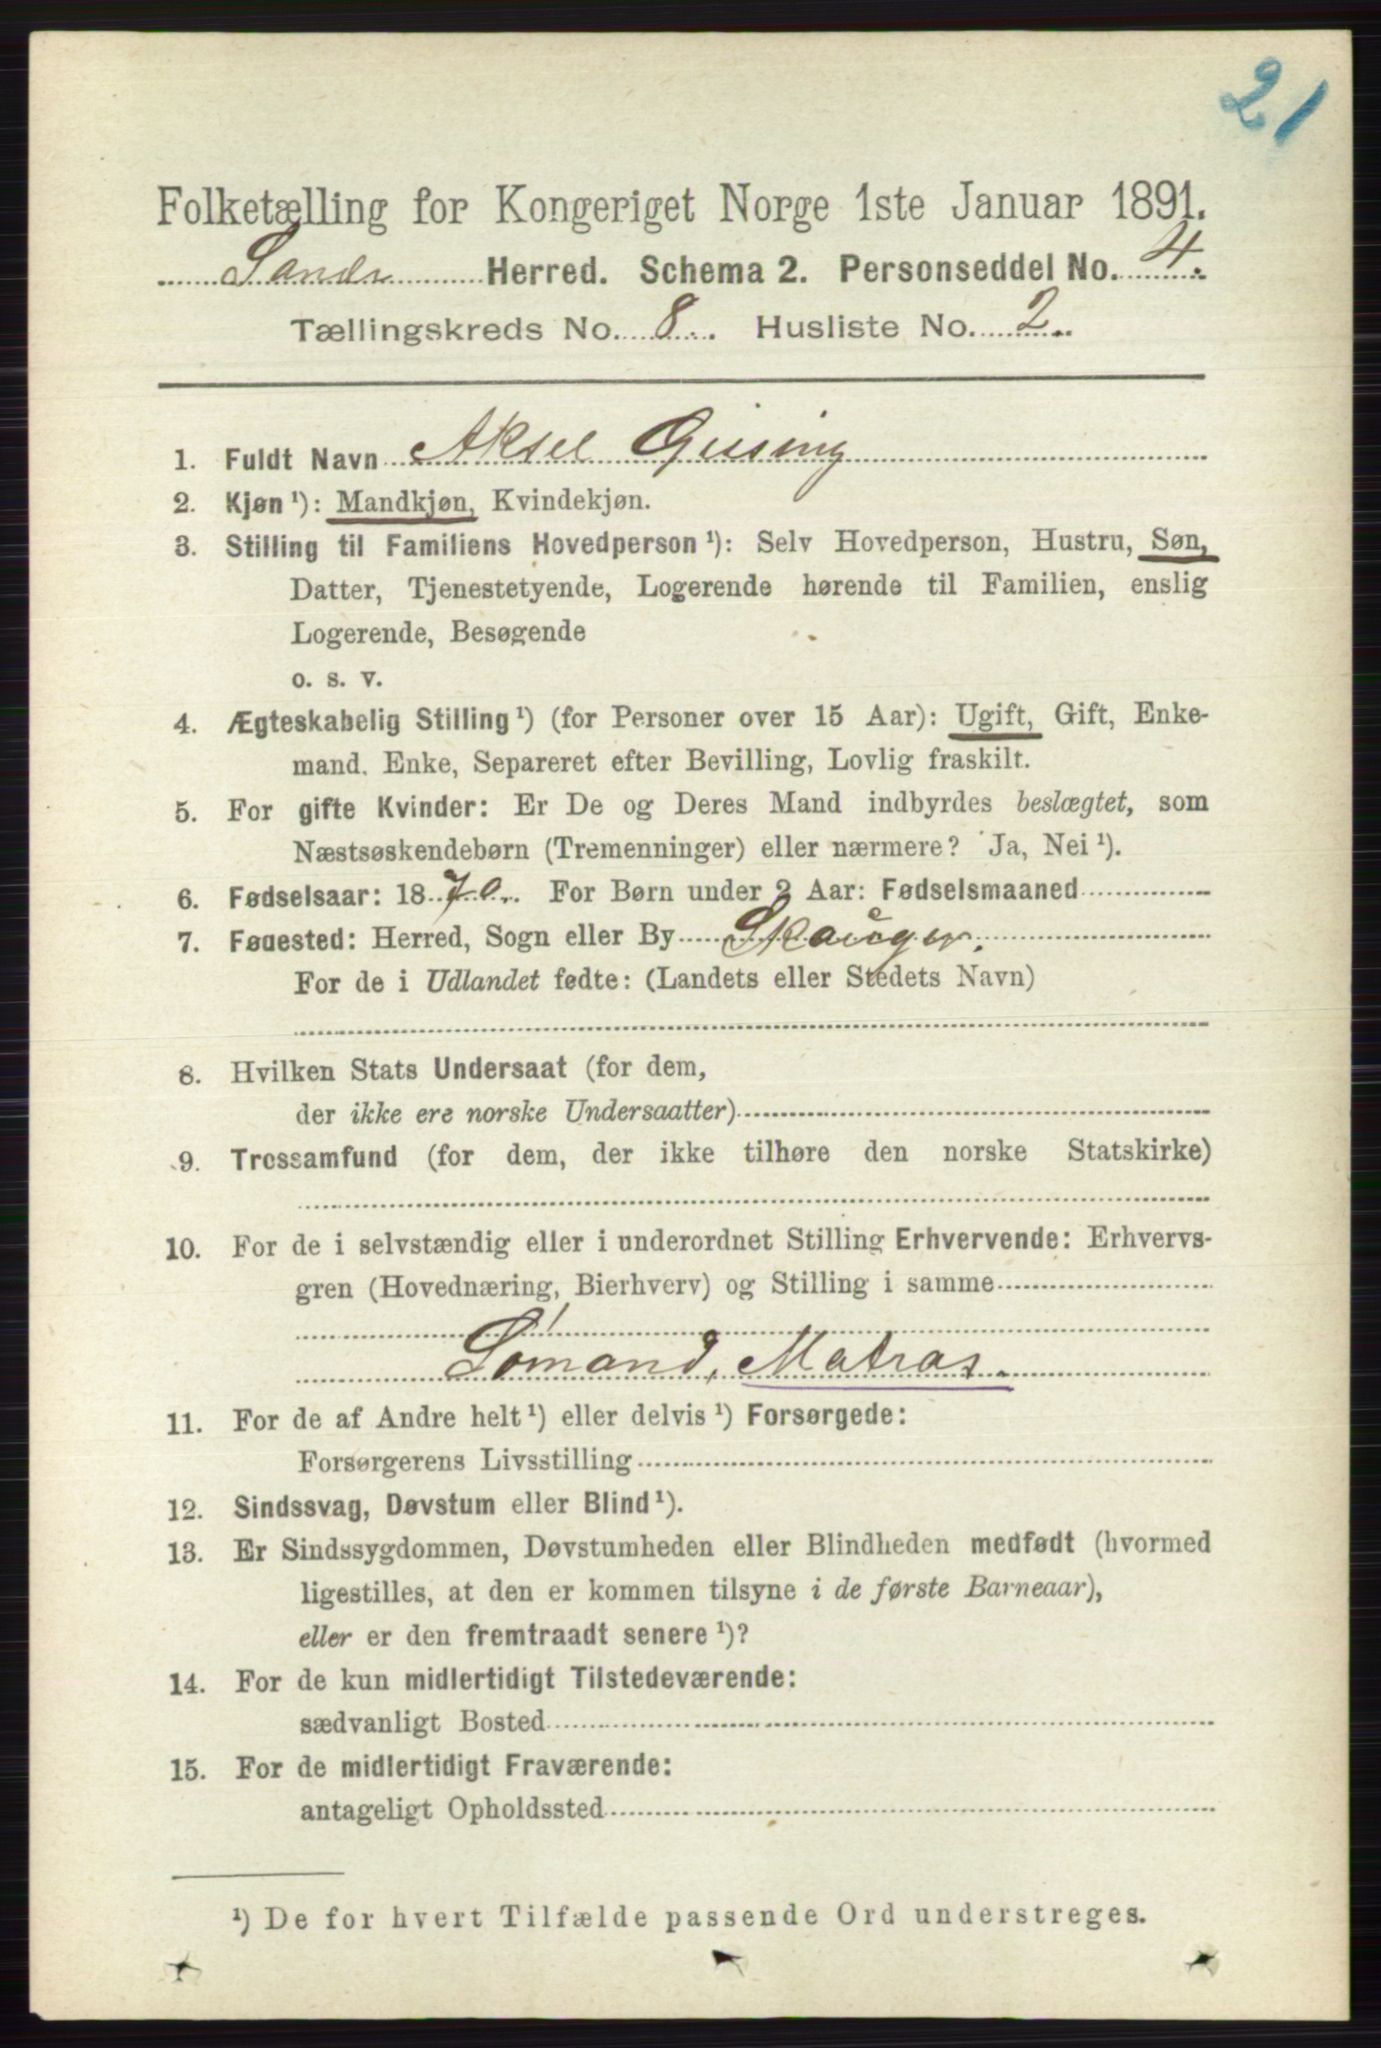 21
Folketælling for Kongeriget Norge 1ste Januar 1891.
Herred. Schema 2. Personseddel No. 4.
Tællingskreds No. 8. Husliste No. 2.
1. Fuldt Navn Aksel
2. Kjøn ¹): Mandkjøn, Kvindekjøn.
3. Stilling til Familiens Hovedperson ¹): Selv Hovedperson, Hustru, Søn,
Datter, Tjenestetyende, Logerende hørende til Familien, enslig
Logerende, Besøgende
o. s. v.
4. Ægteskabelig Stilling ¹) (for Personer over 15 Aar): Ugift, Gift, Enke-
mand, Enke, Separeret efter Bevilling, Lovlig fraskilt.
5. For gifte Kvinder: Er De og Deres Mand indbyrdes beslægtet, som
Næstsøskendebørn (Tremenninger) eller nærmere? Ja, Nei ¹).
6. Fødselsaar: 1870. For Børn under 2 Aar: Fødselsmaaned
7. Fødested: Herred, Sogn eller By Skauger.
For de i Udlandet fødte: (Landets eller Stedets Navn)
8. Hvilken Stats Undersaat (for dem,
der ikke ere norske Undersaatter)
9. Trossamfund (for dem, der ikke tilhøre den norske Statskirke)
10. For de i selvstændig eller i underordnet Stilling Erhvervende: Erhvervs-
gren (Hovednæring, Bierhverv) og Stilling i samme
Sömand, Matras.
11. For de af Andre helt ¹) eller delvis ¹) Forsørgede:
Forsørgerens Livsstilling
12. Sindssvag, Døvstum eller Blind ¹).
13. Er Sindssygdommen, Døvstumheden eller Blindheden medfødt (hvormed
ligestilles, at den er kommen tilsyne i de første Barneaar),
eller er den fremtraadt senere ¹)?
14. For de kun midlertidigt Tilstedeværende:
sædvanligt Bosted
15. For de midlertidigt Fraværende:
antageligt Opholdssted
¹) De for hvert Tilfælde passende Ord understreges.